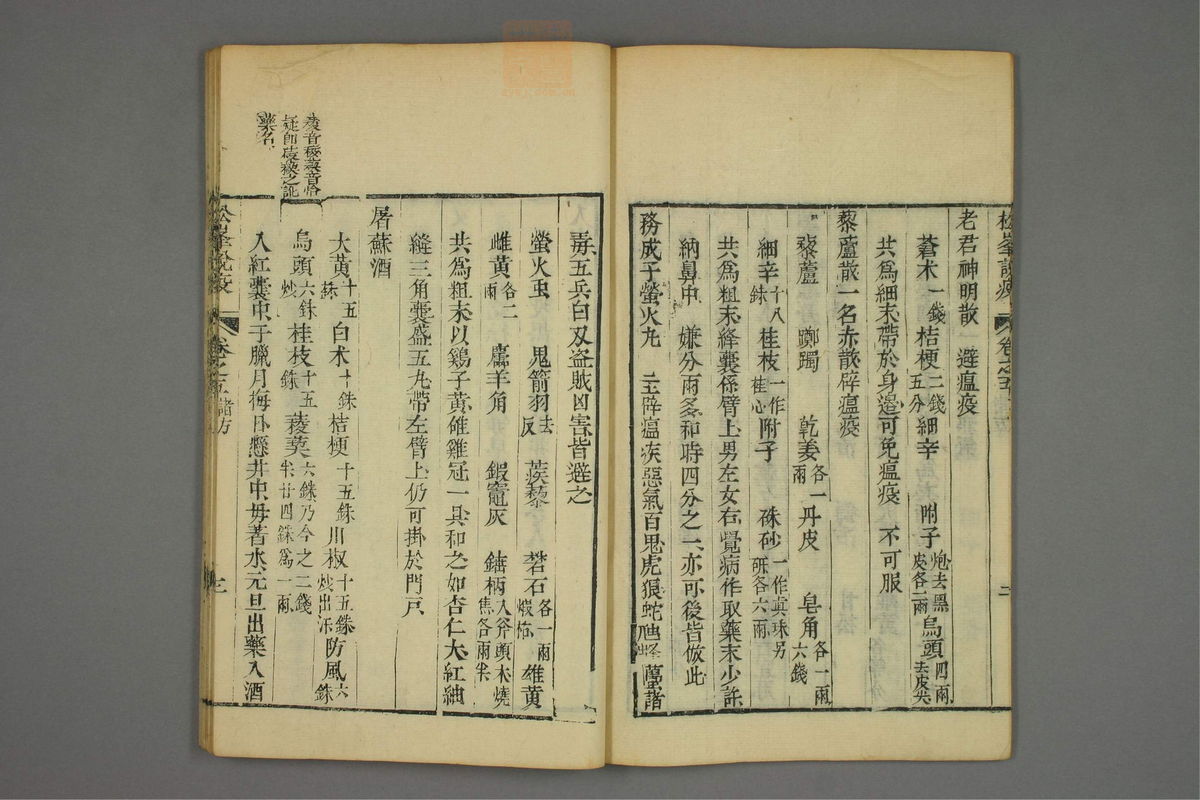 松峯説疫 卷之五 二
老君神明散 避瘟疫
蒼朮一錢桔梗二錢五分細辛 附子炮去黑皮各二兩烏頭四兩去皮尖
共爲細末帶於身邊可免瘟疫 不可服
藜蘆散一名赤散辟瘟疫
藜蘆 躑躅 乾姜各一兩丹皮 皂角各一兩六錢
細辛十八銖桂枝一作桂心附子 硃砂一作眞珠另研各六兩
共爲粗末絳囊係臂上男左女右覺病作取藥末少許
納鼻中 嫌分兩多和時四分之一亦可後皆倣此
務成子螢火丸 主辟瘟疾惡氣百鬼虎狼蛇虺蜂蠆諸
毒五兵白刃盗賊凶害皆避之
螢火虫 鬼箭羽去反 蒺藜 礬石各一兩煅枯雄黄
雌黄各二兩 羚羊角 鍜竈灰 鐵柄入斧頭木燒焦各兩半
共爲粗末以鷄子黄雄雞冠一具和之如杏仁大紅紬
縫三角囊盛五丸帶左臂上仍可掛於門戸
屠蘇酒
大黄十五銖白朮十銖桔梗十五銖川椒十五銖炒出汗防風六銖
烏頭六銖炒桂枝十五銖菝葜六銖乃今之二錢半廿四銖爲一兩
入紅囊中于臘月晦日懸井中毋著水元旦出藥入酒
菝音拔葜音恰
藥名
松峯説疫 卷之五諸方 三